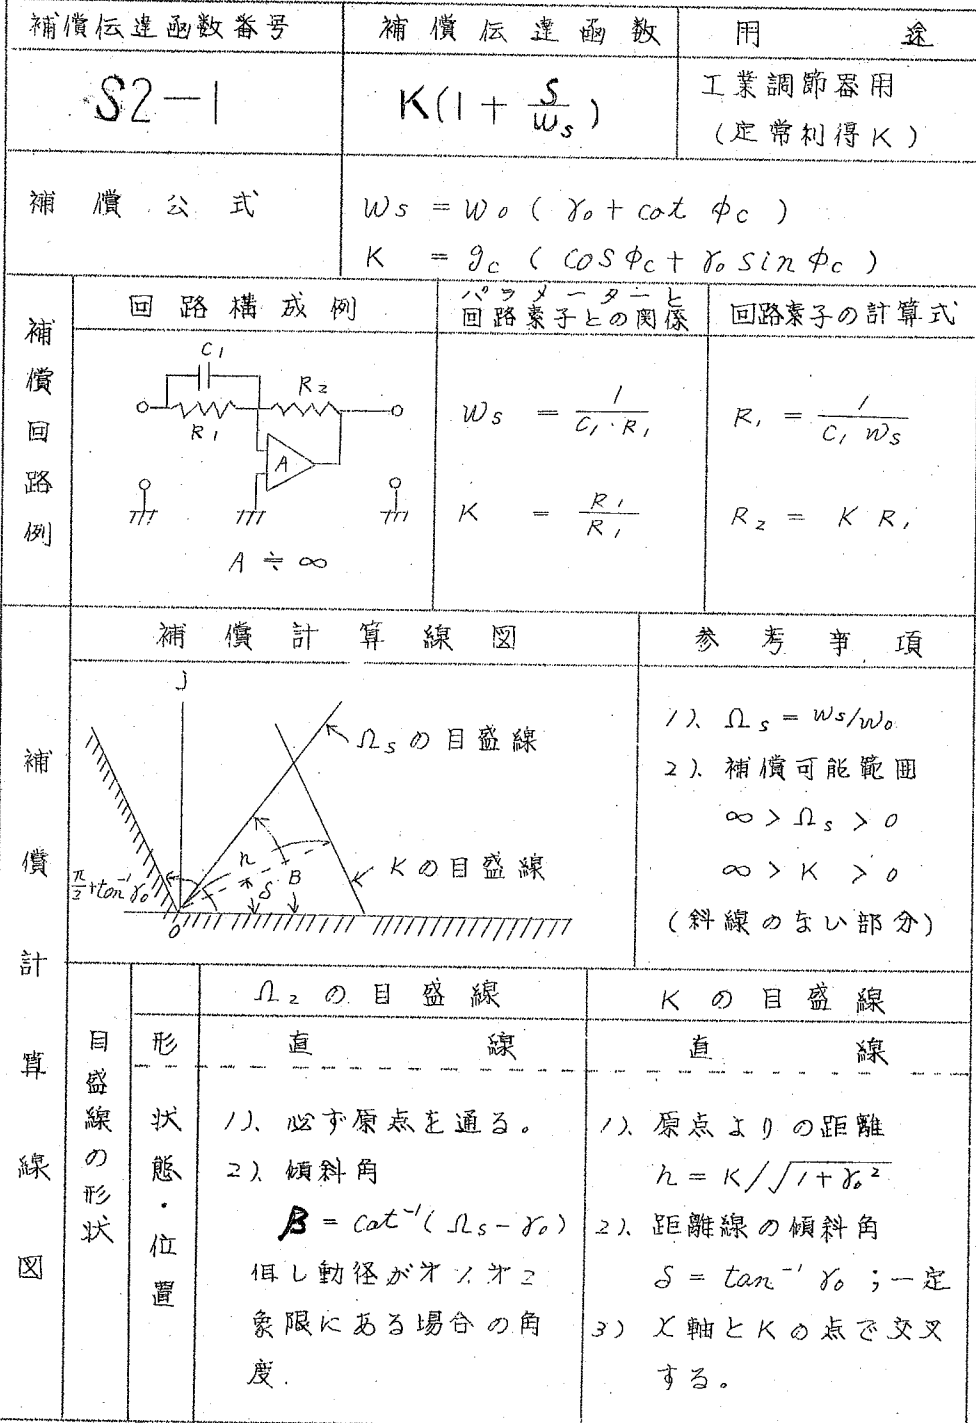 補償伝達函数番号
補償伝達函数
用途
S2-1
K(1 + S/ws)
工業調節器用
(定常利得K)
補償公式
ws = wo ( γo + cot φc )
K = gc ( cos φc + γo sin φc )
補償回路例
回路構成例
パラメーターと
回路素子との関係
回路素子の計算式
C1
R2
R1
A
A ≒ ∞
ws = 1/(C1・R1)
K = R1/R1
R1 = 1/(C1 ws)
R2 = K R1
補償計算線図
補償計算線図
参考事項
J
Ωsの目盛線
Kの目盛線
h
δ
B
π/2+tan⁻¹γo
0
1)、Ωs = ws/wo
2)、補償可能範囲
∞ > Ωs > 0
∞ > K > 0
(斜線のない部分)
目盛線の形状
Ω2の目盛線
Kの目盛線
形
直線
直線
状態・位置
1)、必ず原点を通る。
2)、傾斜角
β = cot⁻¹(Ωs-γo)
但し動径が才1、才2
象限にある場合の角
度.
1)、原点よりの距離
h = K/√1+γo²
2)、距離線の傾斜角
δ = tan⁻¹ γo ; 一定
3) X軸とKの点で交叉
する。